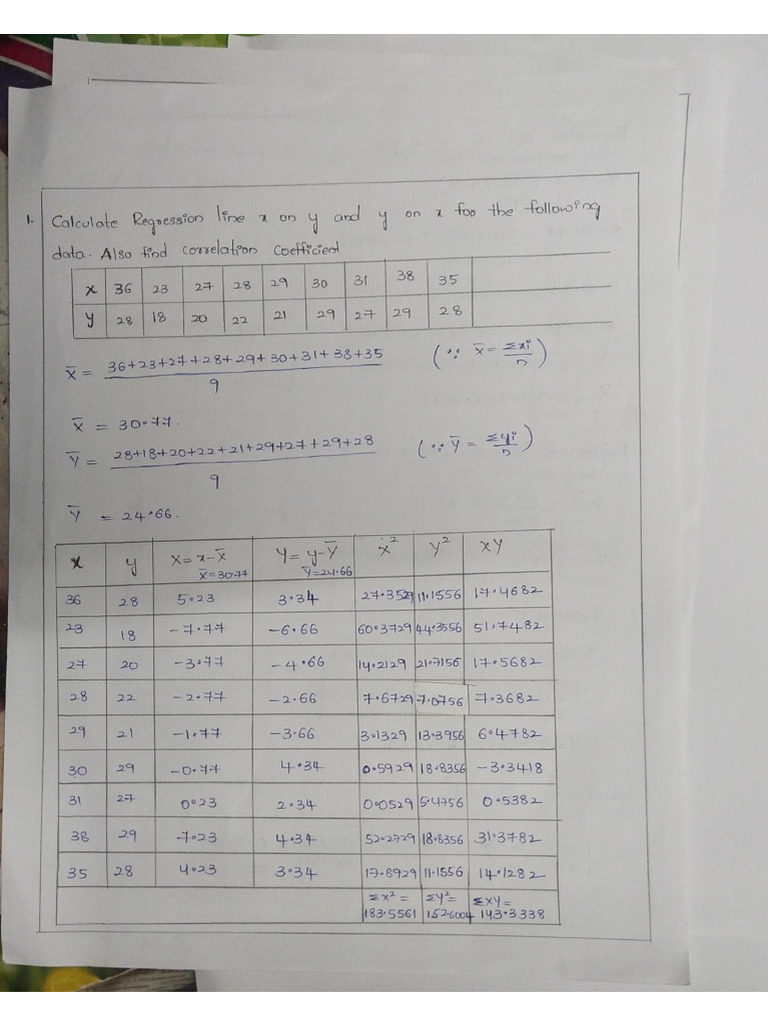 1. Calculate Regression line x on y and y on x foo the following
data. Also find correlation coefficient
x 36 23 27 28 29 30 31 38 35
y 28 18 20 22 21 29 27 29 28
x̄ = 36+23+27+28+29+30+31+38+35 / 9 (∵ x̄ = Σxi/n)
x̄ = 30.77.
ȳ = 28+18+20+22+21+29+27+29+28 / 9 (∵ ȳ = Σyi/n)
ȳ = 24.66.
x y X = x-x̄ x̄=30.77 Y = y-ȳ ȳ=24.66 x² y² XY
36 28 5.23 3.34 27.3529 11.1556 17.4682
23 18 -7.77 -6.66 60.3729 44.3556 51.7482
27 20 -3.77 -4.66 14.2129 21.7156 17.5682
28 22 -2.77 -2.66 7.6729 7.0756 7.3682
29 21 -1.77 -3.66 3.1329 13.3956 6.4782
30 29 -0.77 4.34 0.5929 18.8356 -3.3418
31 27 0.23 2.34 0.0529 5.4756 0.5382
38 29 -7.23 4.34 52.2729 18.8356 31.3782
35 28 4.23 3.34 17.8929 11.1556 14.1282
Σx² = 183.5561 Σy² = 152.6004 ΣXY = 143.3338